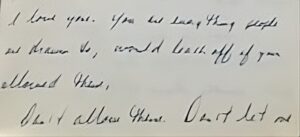 I love you. You are everything people
are drawn to, would leach off of you
allowed them.
Don't allow them. Don't let one